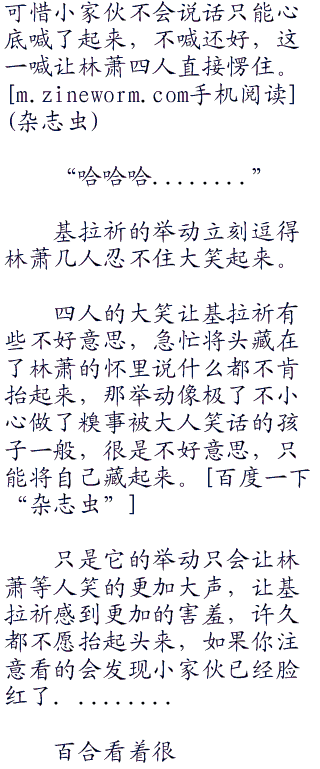 可惜小家伙不会说话只能心
底喊了起来，不喊还好，这
一喊让林萧四人直接愣住。
[m.zineworm.com手机阅读]
(杂志虫)
“哈哈哈........”
基拉祈的举动立刻逗得
林萧几人忍不住大笑起来。
四人的大笑让基拉祈有
些不好意思，急忙将头藏在
了林萧的怀里说什么都不肯
抬起来，那举动像极了不小
心做了糗事被大人笑话的孩
子一般，很是不好意思，只
能将自己藏起来。[百度一下
“杂志虫”]
只是它的举动只会让林
萧等人笑的更加大声，让基
拉祈感到更加的害羞，许久
都不愿抬起头来，如果你注
意看的会发现小家伙已经脸
红了．........
百合看着很